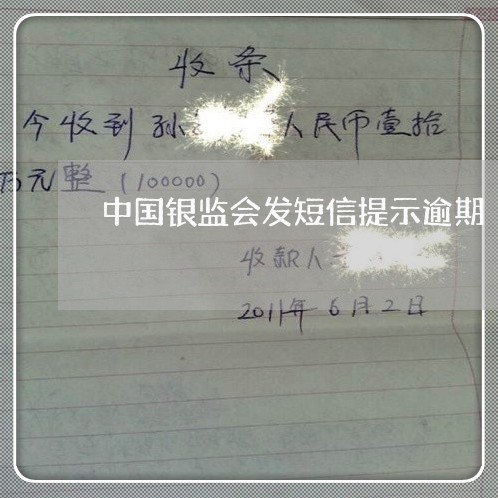 收条
今收到孙 人民币壹拾
万元整（100000）
中国银监会发短信提示逾期
收款人
2011年6月2日